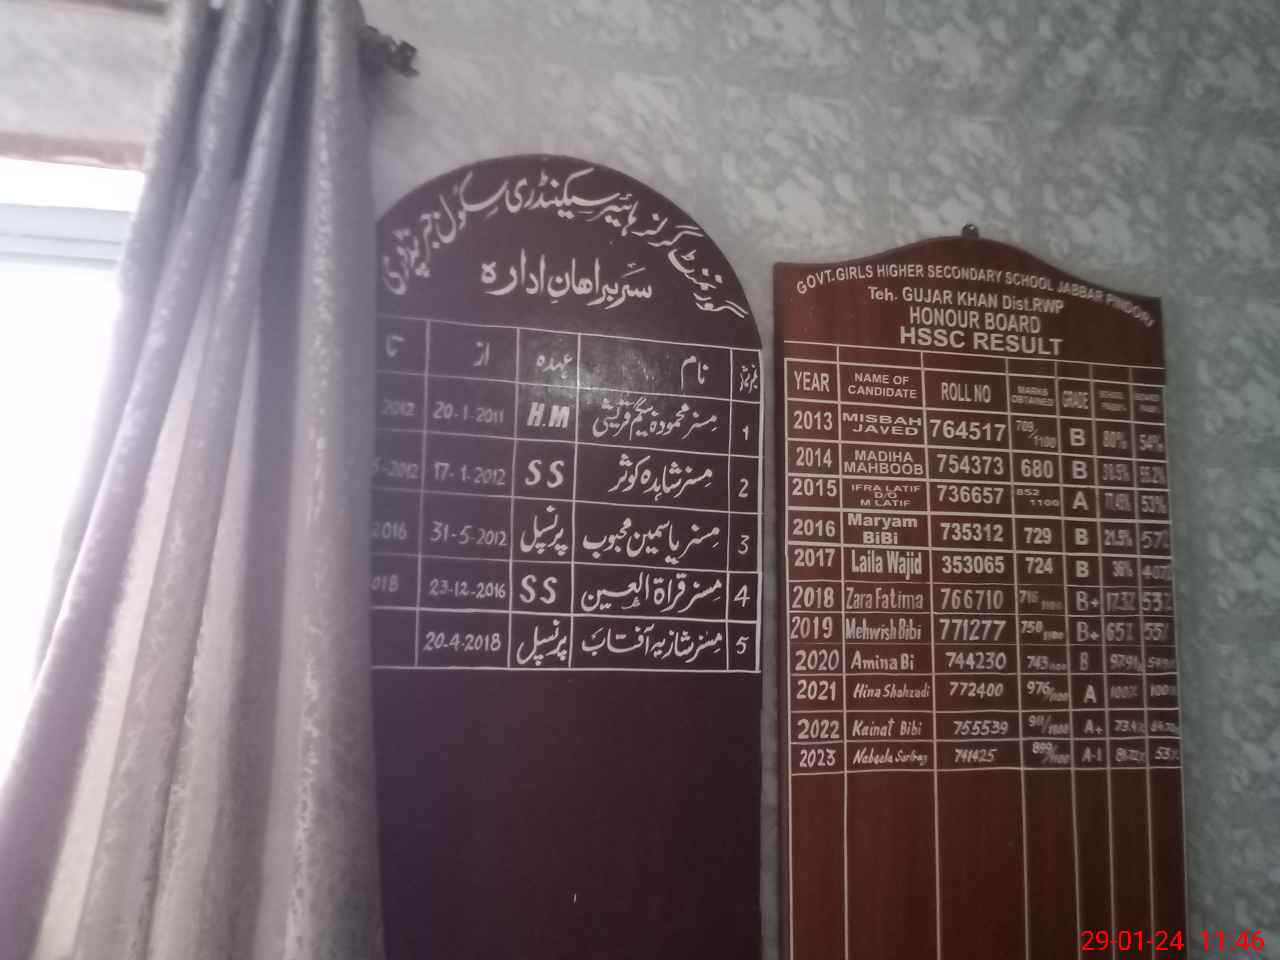 گورنمنٹ گرلز ہائیر سیکنڈری سکول جبر پنڈوڑی
سربراہانِ ادارہ
نام عہدہ از تا
1 مسز محمودہ بیگم قریشی H.M 20-1-2011 2012
2 مسز شاہدہ کوثر SS 17-1-2012 5-2012
3 مسز یاسمین محبوب پرنسپل 31-5-2012 2016
4 مسز قراۃ العین SS 23-12-2016 018
5 مسز شازیہ آفتاب پرنسپل 20-4-2018
GOVT.GIRLS HIGHER SECONDARY SCHOOL JABBAR PINDORI
Teh. GUJAR KHAN Dist.RWP
HONOUR BOARD
HSSC RESULT
YEAR NAME OF CANDIDATE ROLL NO MARKS OBTAINED GRADE SCHOOL BOARD
2013 MISBAH JAVED 764517 709/1100 B 80% 54%
2014 MADIHA MAHBOOB 754373 680 B
2015 IFRA LATIF D/O M LATIF 736657 852 1100 A 53%
2016 Maryam BiBi 735312 729 B 21.5% 57%
2017 Laila Wajid 353065 724 B 36%
2018 Zara Fatima 766710 B+ 53%
2019 Mehwish Bibi 771277 750/1100 B+ 65% 55%
2020 Amina Bi 744230 743/1100 B
2021 Hina Shahzadi 772400 976/1100 A 100% 100%
2022 Kainat Bibi 755539 A+
2023 Nabeela Sarfraz 741425 899/1100 A-1 53%
29-01-24 11:46